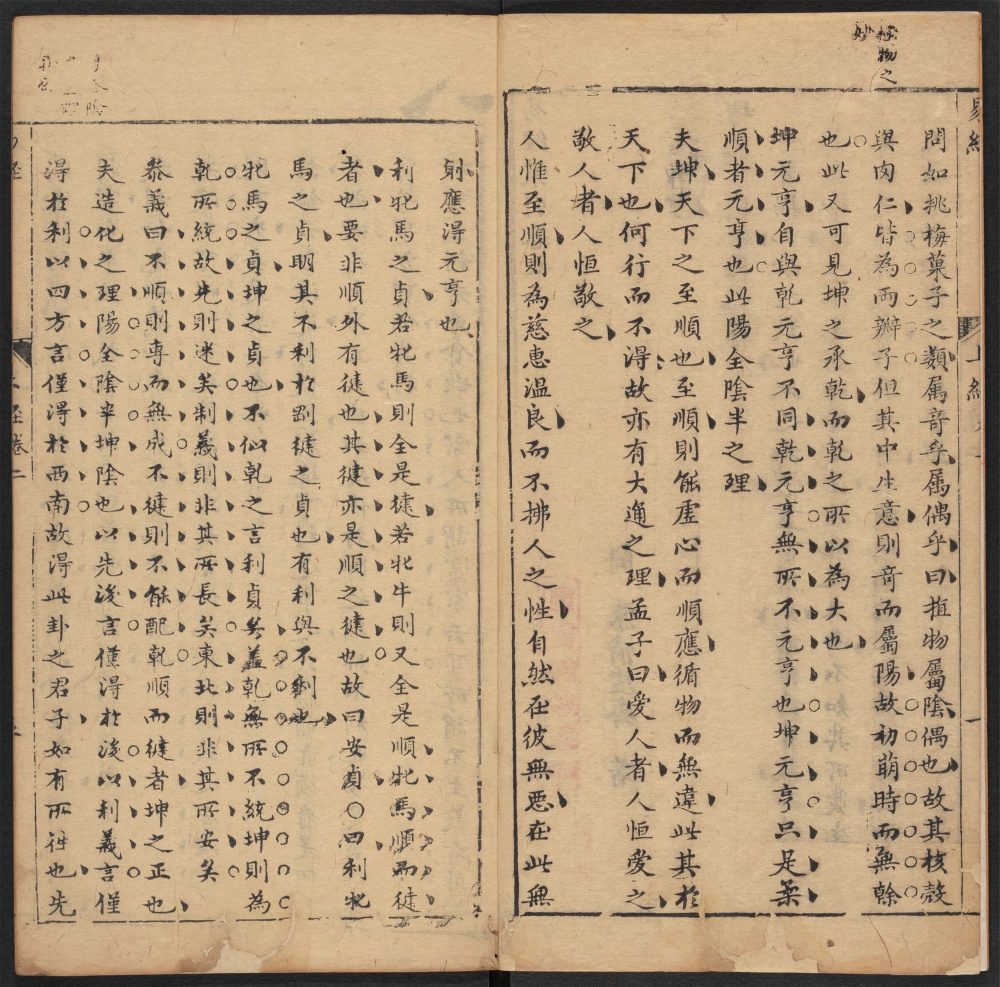 植物之
妙
易經
上經
一
問如桃梅菓子之類属竒乎属偶乎曰植物屬陰偶也故其核殼
與肉仁皆為兩瓣子但其中生意則竒而屬陽故初萌時而無餘
也此又可見坤之承乾而乾之所以為大也
坤元亨自與乾元亨不同乾元亨無所不元亨也坤元亨只是柔
順者元亨也此陽全陰半之理
夫坤天下之至順也至順則能虛心而順應循物而無違此其於
天下也何行而不得故亦有大通之理孟子曰愛人者人恒愛之
敬人者人恒敬之
人惟至順則為慈惠温良而不拂人之性自然在彼無惡在此無
陰
射應得元亨也
利牝馬之貞若牝馬則全是徤若牝牛則又全是順牝馬順而徤
者也要非順外有徤也其徤亦是順之徤也故曰安貞〇曰利牝
馬之貞明其不利於剛徤之貞也有利與不利也
牝馬之貞坤之貞也不似乾之言利貞矣盖乾無所不統坤則為
乾所統故先則迷矣制義則非其所長矣東北則非其所安矣
叅義曰不順則專而無成不徤則不能配乾順而徤者坤之正也
夫造化之理陽全陰半坤陰也以先後言僅得於後以利義言僅
得於利以四方言僅得於西南故得此卦之君子如有所往也先
上經卷二